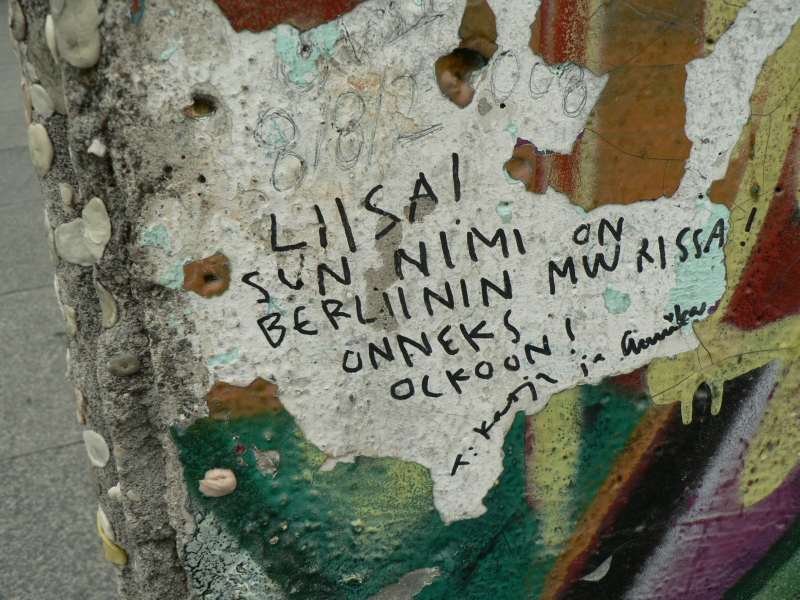 8/8/2008
LIISA!
SUN NIMI ON
BERLIININ MUURISSA!
ONNEKS
OLKOON!
T. Kaija ja Annika